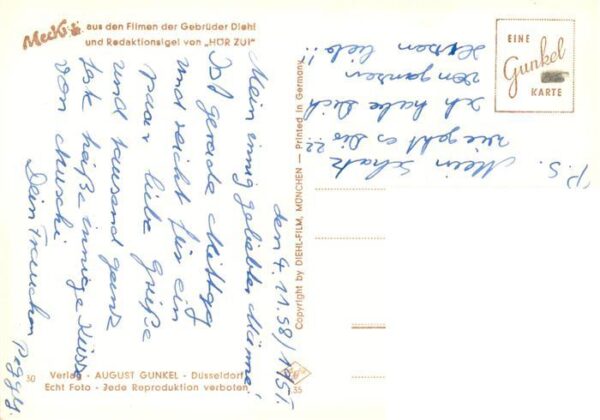 Mecki aus den Filmen der Gebrüder Diehl
und Redaktionsigel von „HÖR ZU!"
EINE
Gunkel
KARTE
den 4.11.58/1915T.
Mein innig geliebter Männe!
Ist gerade Mittag
und reicht für ein
paar liebe Grüße
und tausend ganz
feste heiße innige Küsse
von Muschi
Dein Frauchen
Peggy
P.S.
Mein Schatz
wie geht es Dir??
Ich habe Dich
von ganzem
Herzen lieb!!
Copyright by DIEHL-FILM, MÜNCHEN — Printed in Germany
30
Verlag - AUGUST GUNKEL - Düsseldorf
Echt Foto - Jede Reproduktion verboten
35